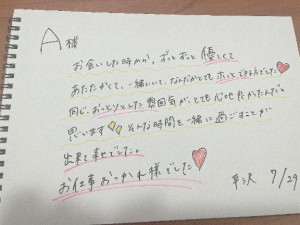 A様
お会いした時から、ずっとずっと優しくて
あたたかくて、一緒にいて、なんだかとてもホッとできる方でした
同じ、おっとりとした雰囲気が、とても心地良かったんだと
思います そんな時間を一緒に過ごすことが
出来て幸せでした。
お仕事おつかれ様でした
7/29